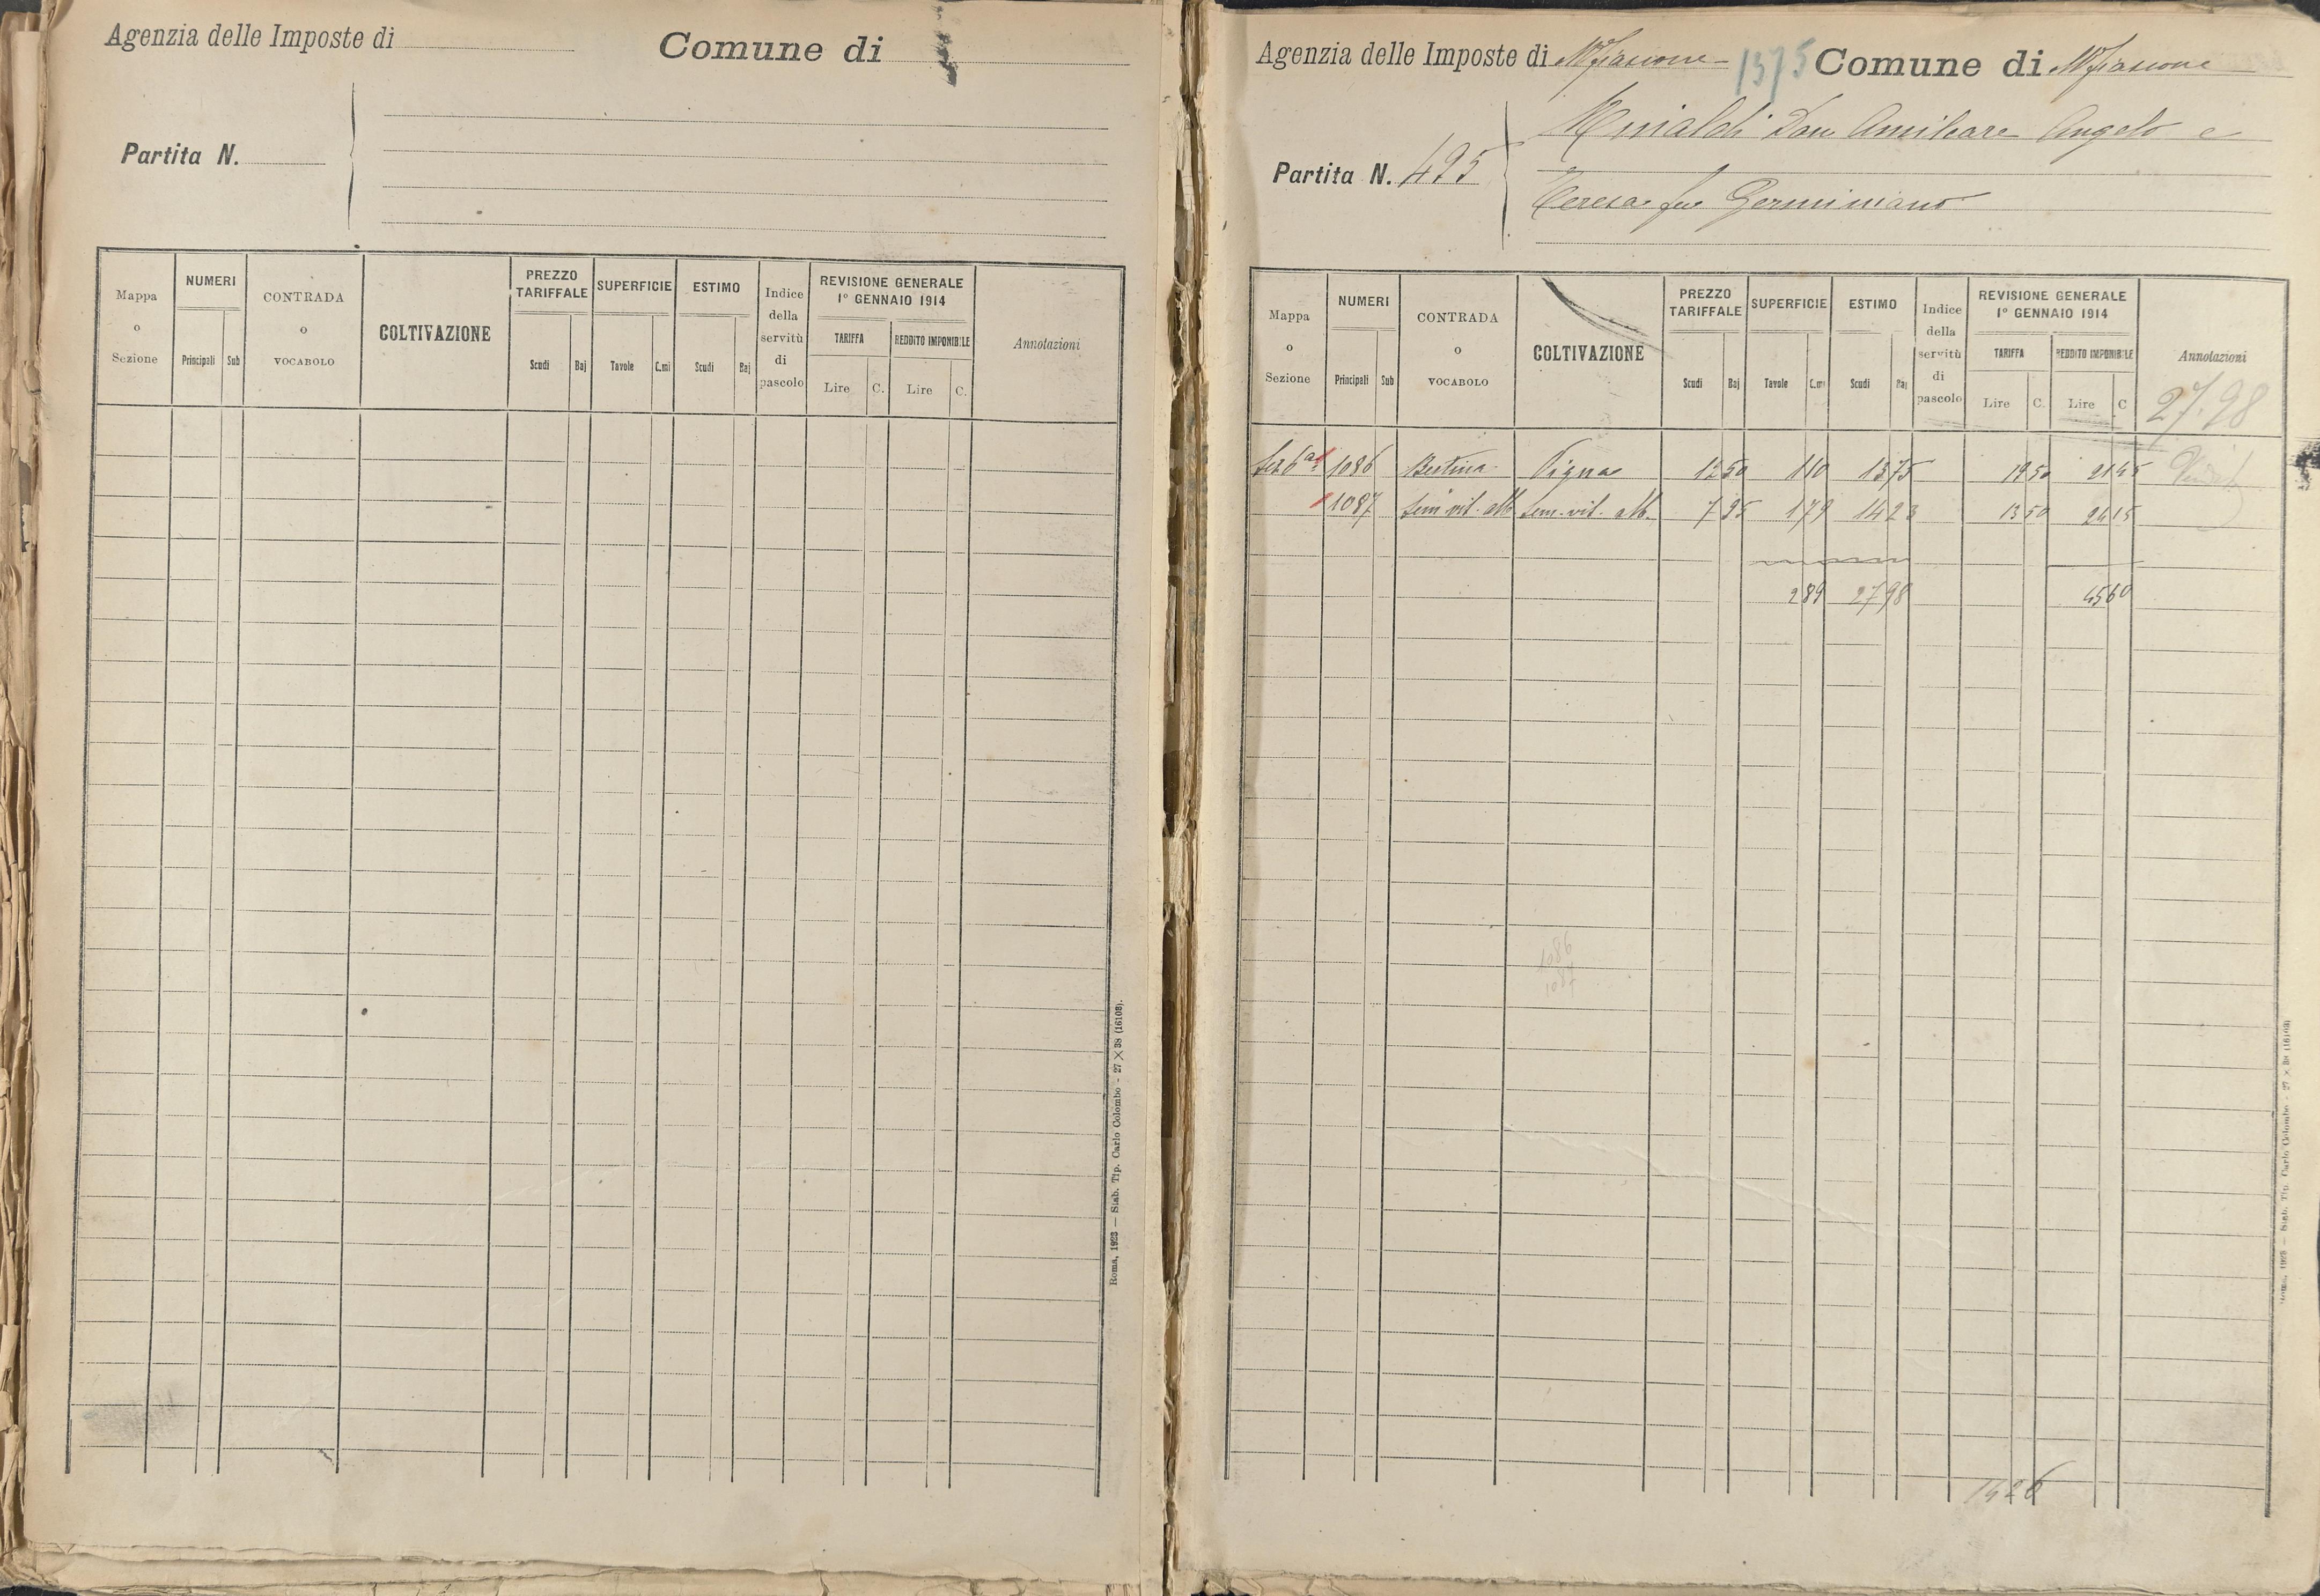 Agenzia delle Imposte di
Comune di
Partita N.
Mappa o Sezione
NUMERI
Principali Sub
CONTRADA o VOCABOLO
COLTIVAZIONE
PREZZO TARIFFALE
Scudi Baj
SUPERFICIE
Tavole C.mi
ESTIMO
Scudi Baj
Indice della servitù di pascolo
REVISIONE GENERALE
1º GENNAIO 1914
TARIFFA
Lire C.
REDDITO IMPONIBILE
Lire C.
Annotazioni
Roma, 1923 — Stab. Tip. Carlo Colombo - 27 × 38 (16108).
Agenzia delle Imposte di Mfiascone 1375 Comune di Mfiascone
Partita N. 495
Rinaldi Don Amilcare Angelo e
Teresa fu Germiniano
Mappa o Sezione
NUMERI
Principali Sub
CONTRADA o VOCABOLO
COLTIVAZIONE
PREZZO TARIFFALE
Scudi Baj
SUPERFICIE
Tavole C.mi
ESTIMO
Scudi Baj
Indice della servitù di pascolo
REVISIONE GENERALE
1º GENNAIO 1914
TARIFFA
Lire C.
REDDITO IMPONIBILE
Lire C
Annotazioni
27.98
Sez 6ª 1086 Vigna 12 50 1 10 13 75 19 50 21 45
1087 Sem. vit. alb. Sem. vit. alb. 7 95 1 79 14 23 13 50 24 15
2 89 27 98 45 60
1086
1087
1426
Roma, 1923 — Stab. Tip. Carlo Colombo - 27 × 38 (16108)